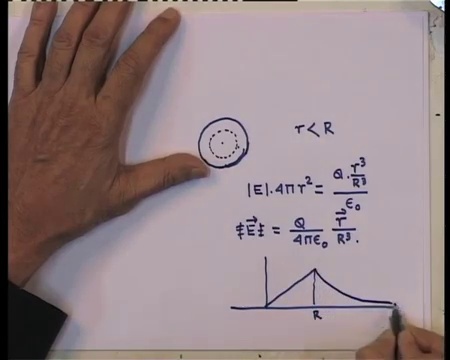 r < R
|E|.4πr² = Q.r³/R³ / ε₀
E⃗ = Q/4πε₀ r⃗/R³.
R